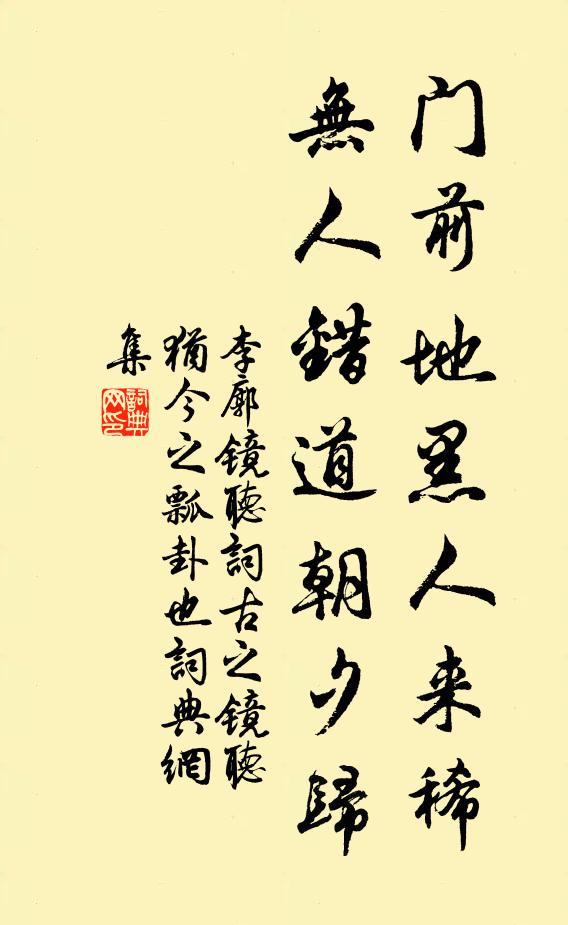 门前地黑人来稀
無人錯道朝夕歸
李廓镜聽詞古之镜聽
猶今之瓢卦也詞典網
集
詞典
网印